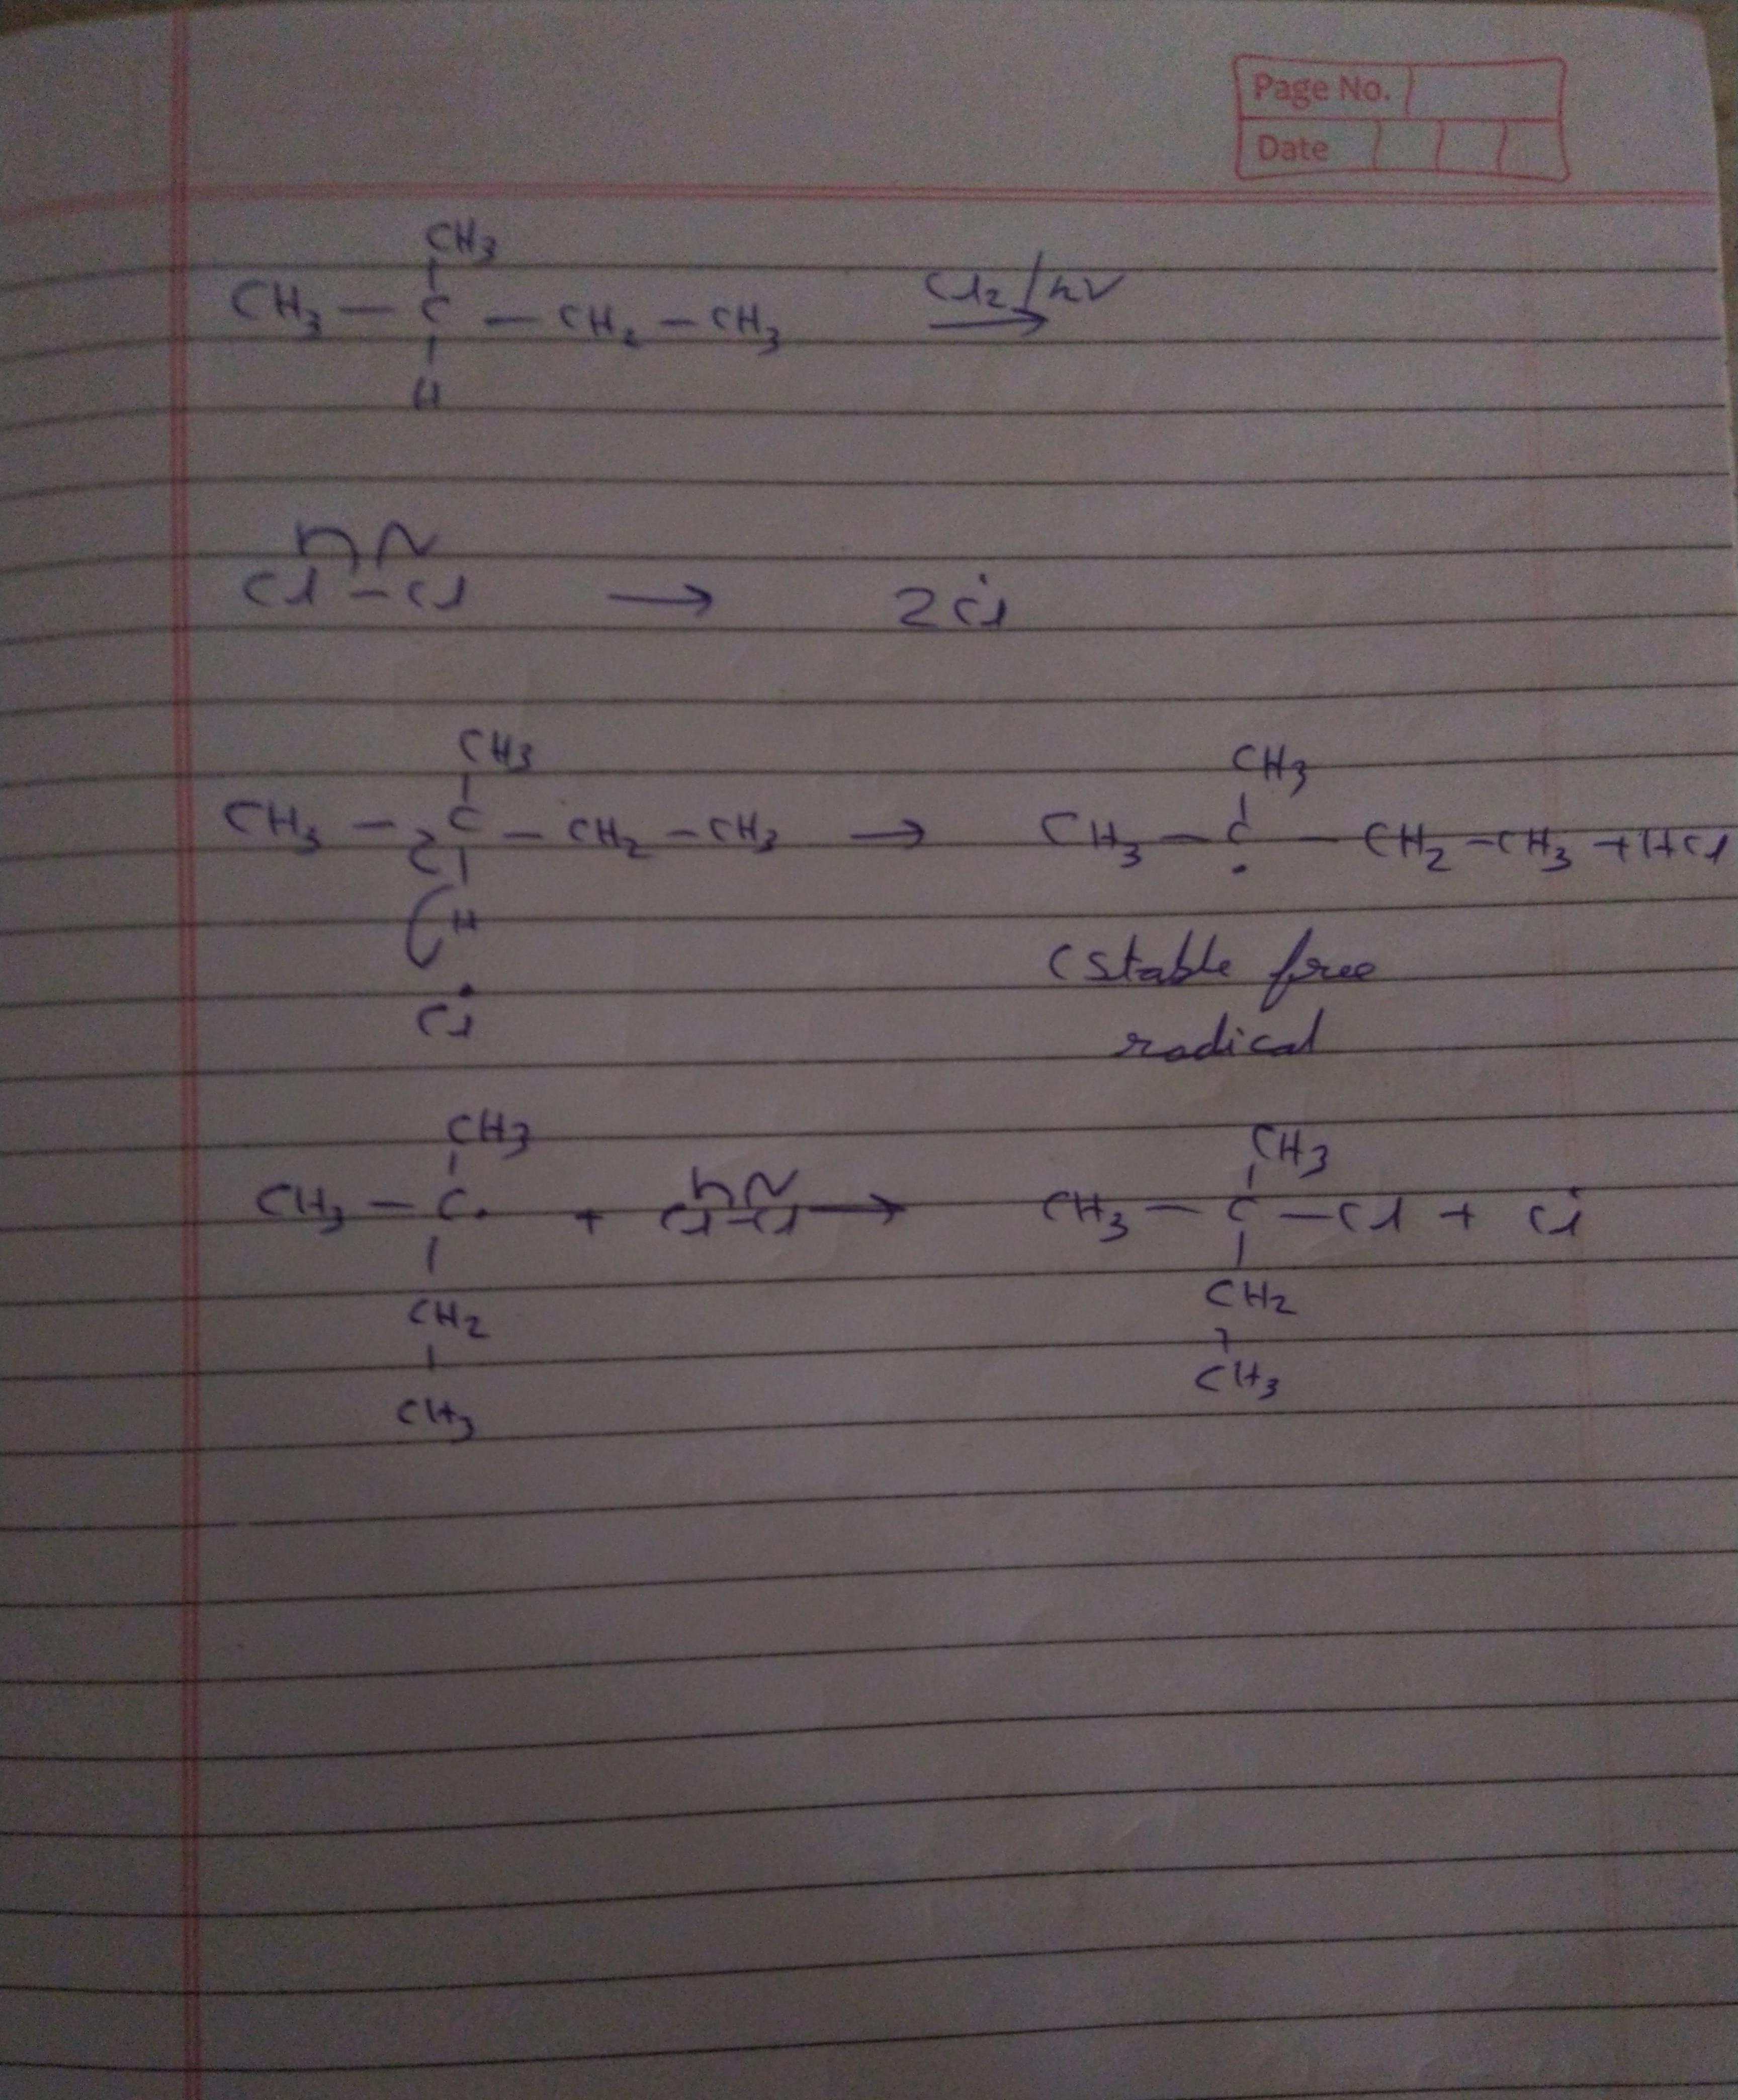 Page No.
Date
CH3
CH3 — C — CH2 — CH3 Cl2/hν →
H
Cl — Cl → 2Cl•
CH3 CH3
CH3 — C — CH2 — CH3 → CH3 — C• — CH2 — CH3 + HCl
H
(stable free
Cl•
radical
CH3 CH3
CH3 — C• + Cl—Cl → CH3 — C — Cl + Cl•
CH2 CH2
CH3 CH3